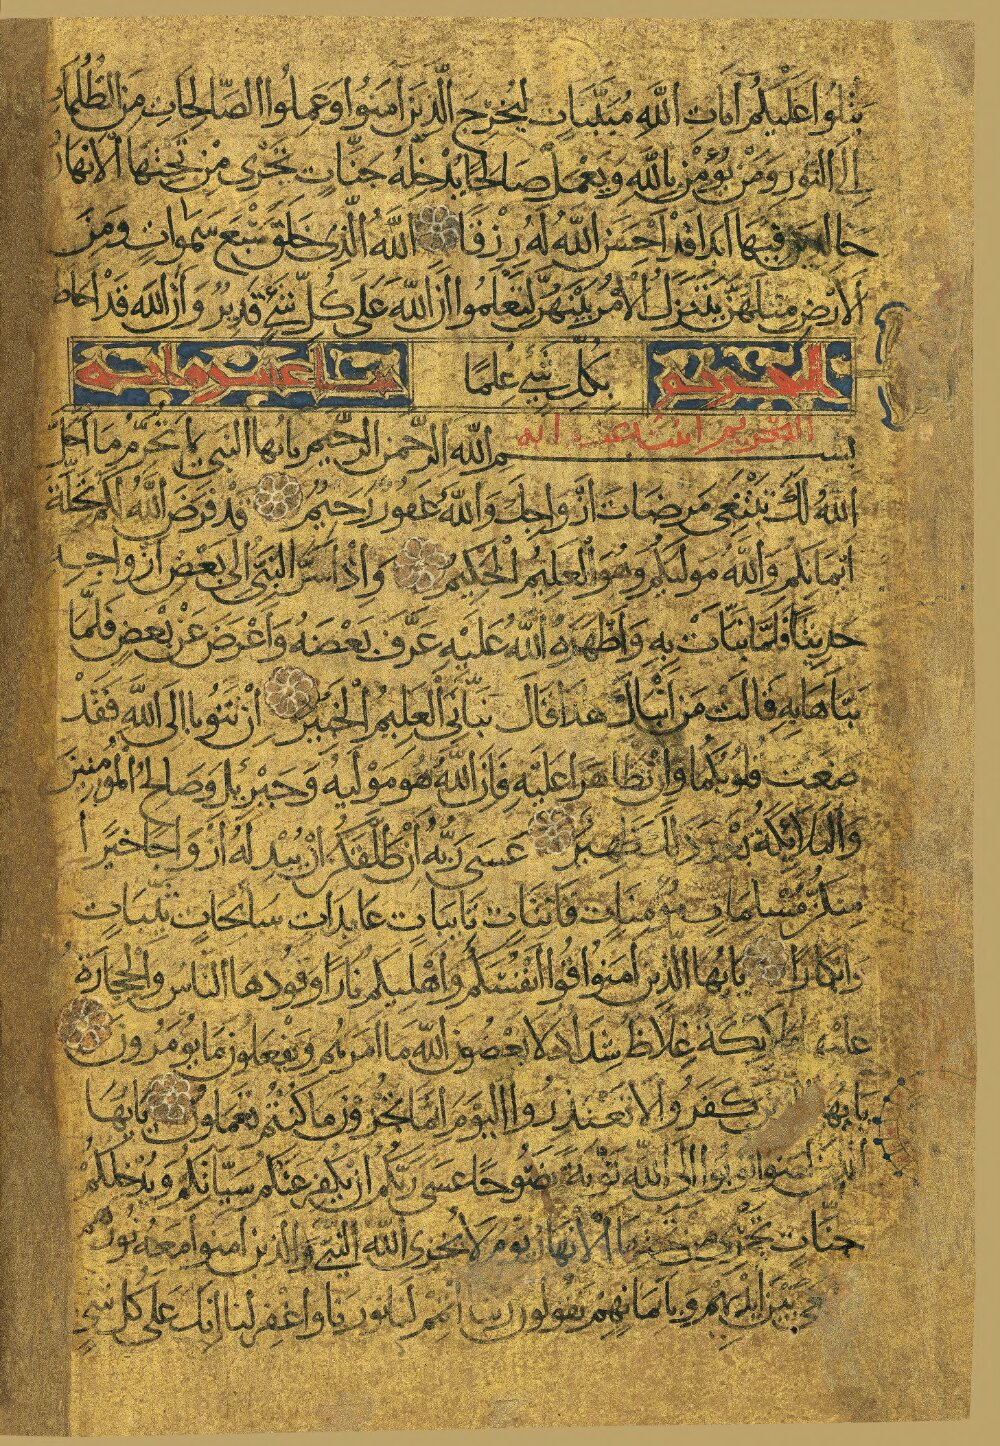 يتلوا عليكم آيات الله مبينات ليخرج الذين آمنوا وعملوا الصالحات من الظلمات
إلى النور ومن يؤمن بالله ويعمل صالحا يدخله جنات تجرى من تحتها الأنهار
خالدين فيها ابدا قد احسن الله له رزقا الله الذى خلق سبع سموات ومن
الأرض مثلهن يتنزل الأمر بينهن لتعلموا أن الله على كل شيء قدير وأن الله قد احاط
التحريم بكل شيء علما
التحريم اثنتا عشرة آية
بسم الله الرحمن الرحيم يا يها النبي لم تحرم ما احل
الله لك تبتغى مرضات أزواجك والله غفور رحيم قد فرض الله لكم تحلة
ايمانكم والله موليكم وهو العليم الحكيم واذ اسر النبي الى بعض ازواجه
حديثا فلما نبات به واظهره الله عليه عرف بعضه واعرض عن بعض فلما
نباها به قالت من انباك هذا قال نبانى العليم الخبير ان تتوبا الى الله فقد
صغت قلوبكما وان تظاهرا عليه فان الله هو موليه وجبريل وصالح المومنين
والملائكة بعد ذلك ظهير عسى ربه ان طلقكن ان يبدله أزواجا خيرا
منكن مسلمات مؤمنات قانتات تايبات عابدات سائحات ثيبات
وابكارا يا يها الذين امنوا قوا انفسكم واهليكم نارا وقودها الناس والحجارة
عليها ملائكة غلاظ شداد لا يعصون الله ما امرهم ويفعلون ما يومرون
يا يها الذين كفروا لا تعتذروا اليوم انما تجزون ما كنتم تعملون يا يها
الذين امنوا توبوا الى الله توبة نصوحا عسى ربكم ان يكفر عنكم سيئاتكم ويدخلكم
جنات تجرى من تحتها الأنهار يوم لا يخزى الله النبي والذين امنوا معه نورهم
يسعى بين ايديهم وبايمانهم يقولون ربنا اتمم لنا نورنا واغفر لنا انك على كل شيء